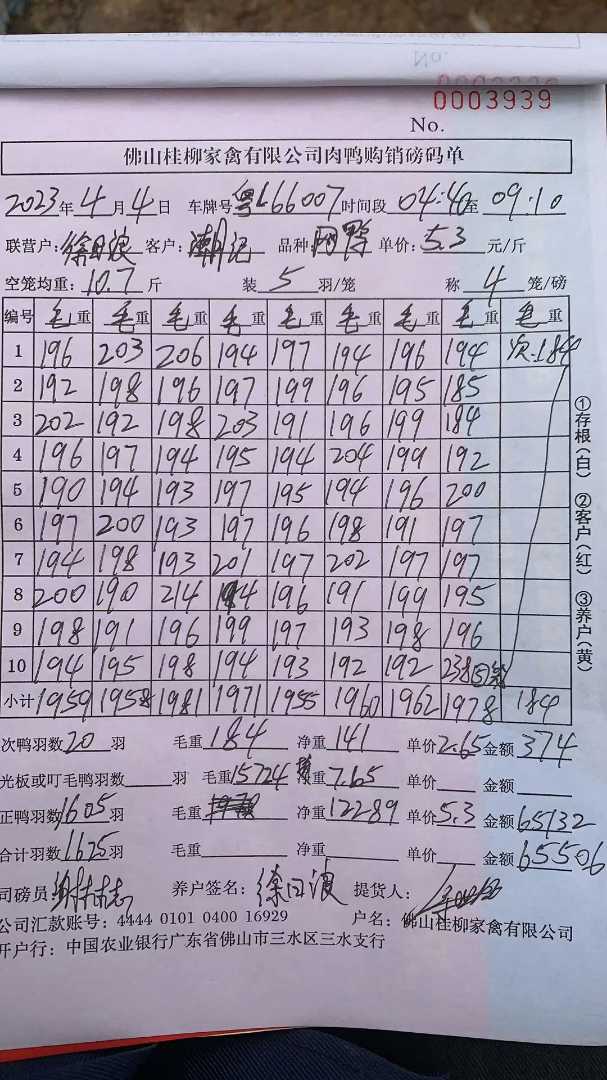 No.
0003939
No.
佛山桂柳家禽有限公司肉鸭购销磅码单
2023年4月4日 车牌号粤L66007时间段04:40至09:10
联营户:徐日浪 客户:潮记 品种: 单价:5.3元/斤
空笼均重:10.7斤 装5羽/笼 称4笼/磅
编号 毛重 毛重 毛重 毛重 毛重 毛重 毛重 毛重 毛重
1 196 203 206 194 197 194 196 194 次.184
2 192 198 196 197 199 196 195 185
3 202 192 198 203 191 196 199 184
4 196 197 194 195 194 204 199 192
5 190 194 193 197 195 194 196 200
6 197 200 193 197 196 198 191 197
7 194 198 193 201 197 202 197 197
8 200 190 214 194 196 191 199 195
9 198 191 196 199 197 193 198 196
10 194 195 198 194 193 192 192 238
小计 1959 1958 1981 1971 1955 1960 1962 1978 184
次鸭羽数20羽 毛重184 净重141 单价2.65金额374
光板或叮毛鸭羽数 羽 毛重15724 重7.65 单价 金额
正鸭羽数1605羽 毛重 净重12289 单价5.3 金额65132
合计羽数1625羽 毛重 净重 单价 金额65506
司磅员 养户签名:徐日浪 提货人:
公司汇款账号:4444 0101 0400 16929 户名:佛山桂柳家禽有限公司
开户行:中国农业银行广东省佛山市三水区三水支行
①存根(白) ②客户(红) ③养户(黄)